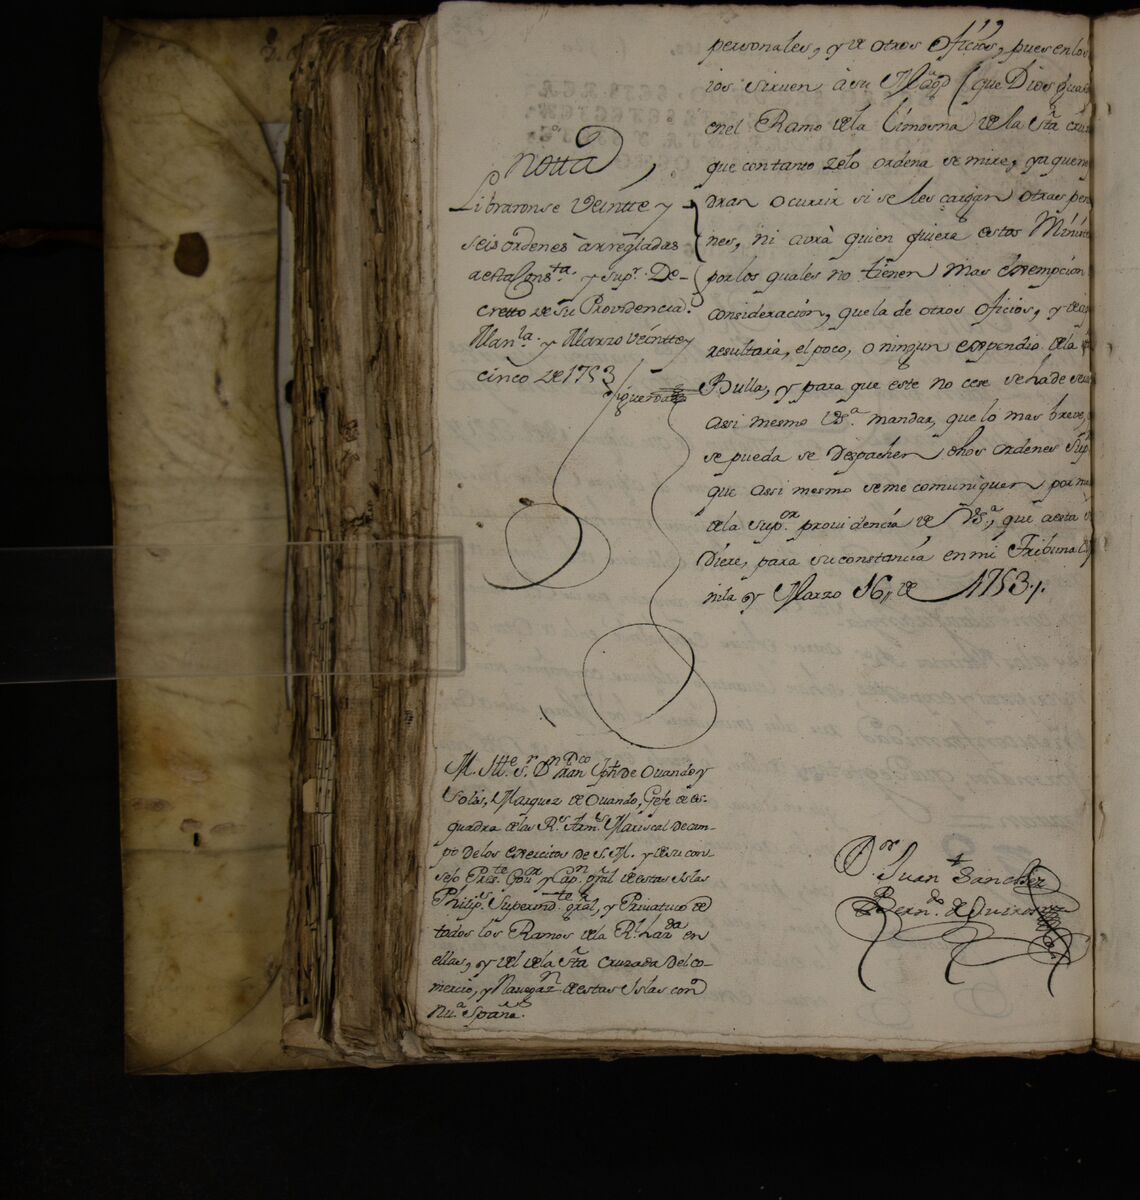 119
personales, y de otros oficios, pues en los
ios sirven à su Magd (que Dios guar
en el Ramo de la Limosna de la Sta Cru
que con tanto zelo ordena se mire, ya que
dran ocurrir si se les cargan otras pen
nes, ni avrà quien quiera estos Minist
por los quales no tienen mas exempcion
consideracion, que la de otros oficios, y de
resultarà, el poco, o ningun expendio de la
Bulla, y para que este no cese se ha de se
assi mesmo VSa. mandar, que lo mas breve,
se pueda se despachen dhos ordenes Sup
que assi mesmo se me comuniquen por
de la Supor providencia de VSa, que a esta
Diere, para su constancia en mi Tribunal
nila y Marzo 16, de 1753.
Notta
Libraronse Veintte y
seis ordenes àrregladas
a esta Consta. y Supr. De-
cretto de su Providencia.
Manla. y Marzo veintte y
cinco de 1753
Figueroa
M. Itte. Sr. Dn Franco Jph de Ovando y
Solis, Marquez de Ovando, Gefe de es-
quadra de las Rs. Arms Mariscal de cam-
po de los exercitos de S. M. y de su con
sejo Preste. Govor y Capn. gral de estas Islas
Philips. Superindte gral, y Privativo de
todos los Ramos de la Rl. Hazda en
ellas, y del de la Sta Cruzada Del co-
mercio, y Navegazn de estas Islas con
Nua. España.
Dor Juan Sanchez
Berndo. de Quiros